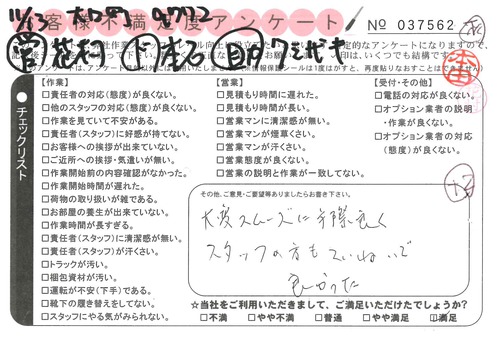 11/13
お客様不満足度アンケート
No 037562
チェックリスト
【作業】
□責任者の対応(態度)が良くない。
□他のスタッフの対応(態度)が良くない。
□作業を見ていて不安がある。
□責任者(スタッフ)に好感が持てない。
□お客様への挨拶が出来ていない。
□ご近所への挨拶・気遣いが無い。
□作業開始前の内容確認がなかった。
□作業開始時間が遅れた。
□荷物の取り扱いが雑である。
□お部屋の養生が出来ていない。
□作業時間が長すぎる。
□責任者(スタッフ)に清潔感が無い。
□責任者(スタッフ)が汗くさい。
□トラックが汚い。
□梱包資材が汚い。
□運転が不安(下手)である。
□靴下の履き替えをしてない。
□スタッフにやる気がみられない。
【営業】
□見積もり時間に遅れた。
□見積もり時間が長い。
□営業マンに清潔感が無い。
□営業マンが煙草くさい。
□営業マンが汗くさい。
□営業態度が良くない。
□営業の説明と作業が一致してない。
【受付・その他】
□電話の対応が良くない。
□オプション業者の説明
・作業が良くない。
□オプション業者の対応
(態度)が良くない。
その他、ご意見・ご要望等ありましたらお書き下さい。
大変スムーズに手際良く
スタッフの方もていねいで
良かった
☆当社をご利用いただきまして、ご満足いただけたでしょうか?
□不満 □やや不満 □普通 □やや満足 ☑満足